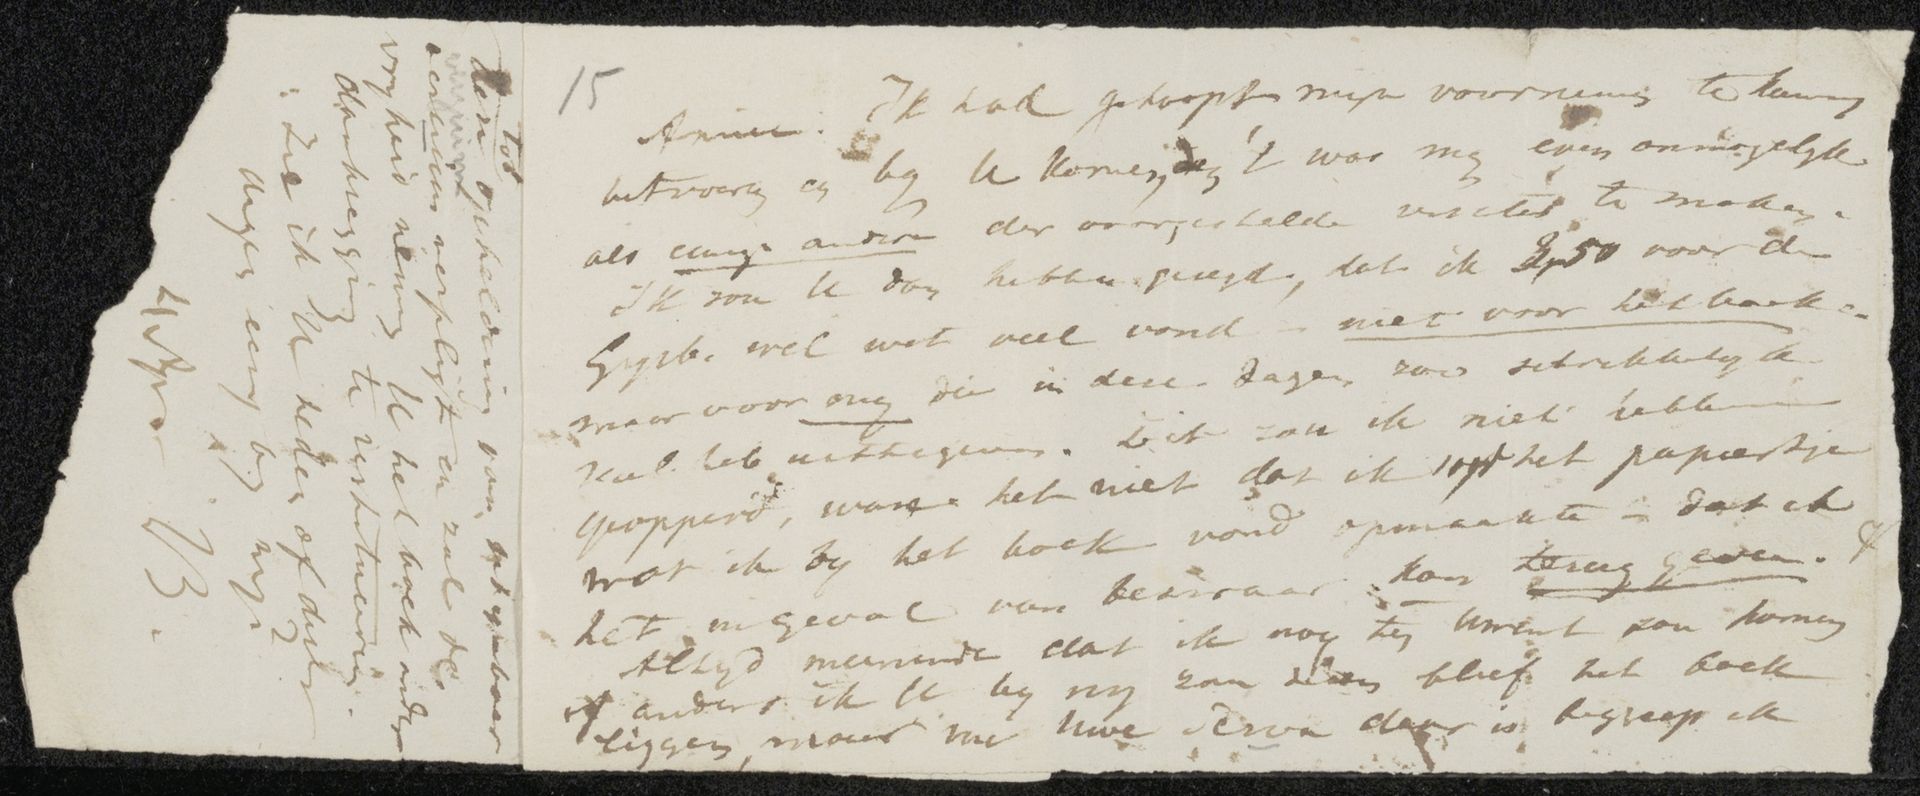 15
Amice. Ik had gehoopt mijn voornemen te kunnen
uitvoeren en by U komen, 't was my even onmogelyk
als eenige andere der voorgestelde visites te maken.
Ik zou U dan hebben gezegd, dat ik 2,50 voor de
wel wat veel vond - niet voor het boek -
maar voor my die in deze dagen zoo schrikkelyk
veel heb uittegeven. Dit zou ik niet hebben
geopperd, ware het niet dat ik uit het papiertje
wat ik by het boek vond opmaakte - dat ik
het ingeval van bezwaar kon terug geven.
Altyd meenende dat ik nog ten Uwent zou komen
of anders ik U by my zou zien bleef het boek
liggen, maar nu Uwe daar is begreep ik
tot
opheldering van
verpligt en zal de
vryheid nemen U het boek onder
dankzegging te restitueeren.
Zie ik U heden of dezer
dagen eens by my?
4 Apr. B.